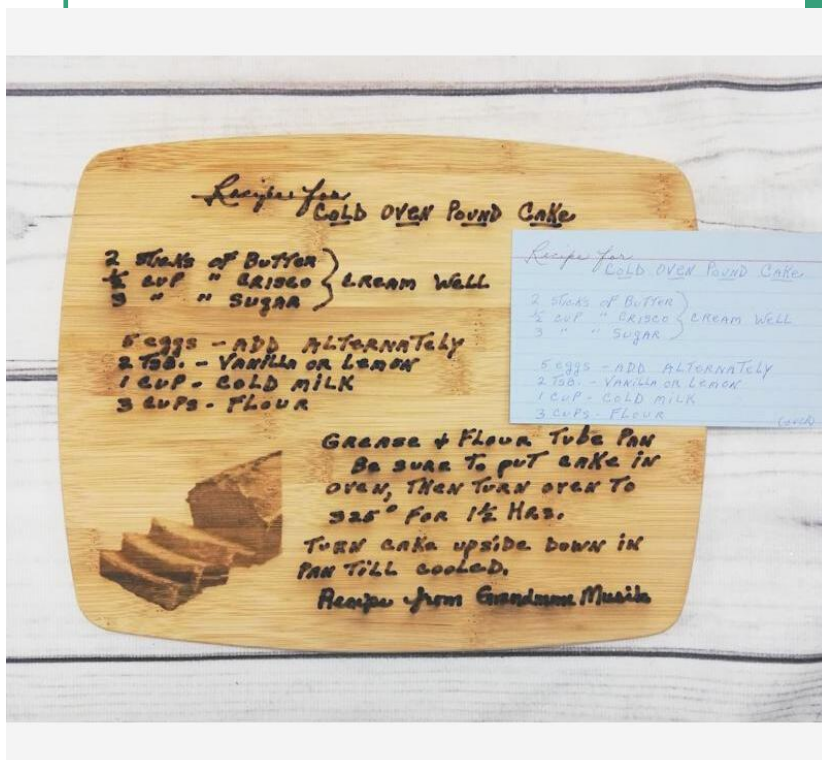 Recipe for
COLD OVEN POUND CAKE
2 STICKS OF BUTTER
½ CUP " CRISCO } CREAM WELL
3 " " SUGAR
5 eggs - ADD ALTERNATELY
2 TSB. - VANILLA OR LEMON
1 CUP - COLD MILK
3 CUPS - FLOUR
GREASE & FLOUR TUBE PAN
BE SURE TO PUT CAKE IN
OVEN, THEN TURN OVEN TO
325° FOR 1½ HRS.
TURN CAKE UPSIDE DOWN IN
PAN TILL COOLED.
Recipe from Grandmom
Recipe for
COLD OVEN POUND CAKE
2 STICKS OF BUTTER
½ CUP " CRISCO } CREAM WELL
3 " " SUGAR
5 eggs - ADD ALTERNATELY
2 TSB. - VANILLA OR LEMON
1 CUP - COLD MILK
3 CUPS - FLOUR
(OVER)